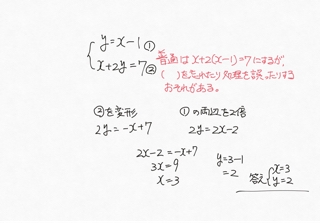 y=x-1 ①
x+2y=7 ②
普通は x+2(x-1)=7にするが,
( )を忘れたり 処理を誤ったりする
おそれがある。
②を変形
2y=-x+7
①の両辺を2倍
2y=2x-2
2x-2=-x+7
3x=9
x=3
y=3-1
=2
答え { x=3
y=2